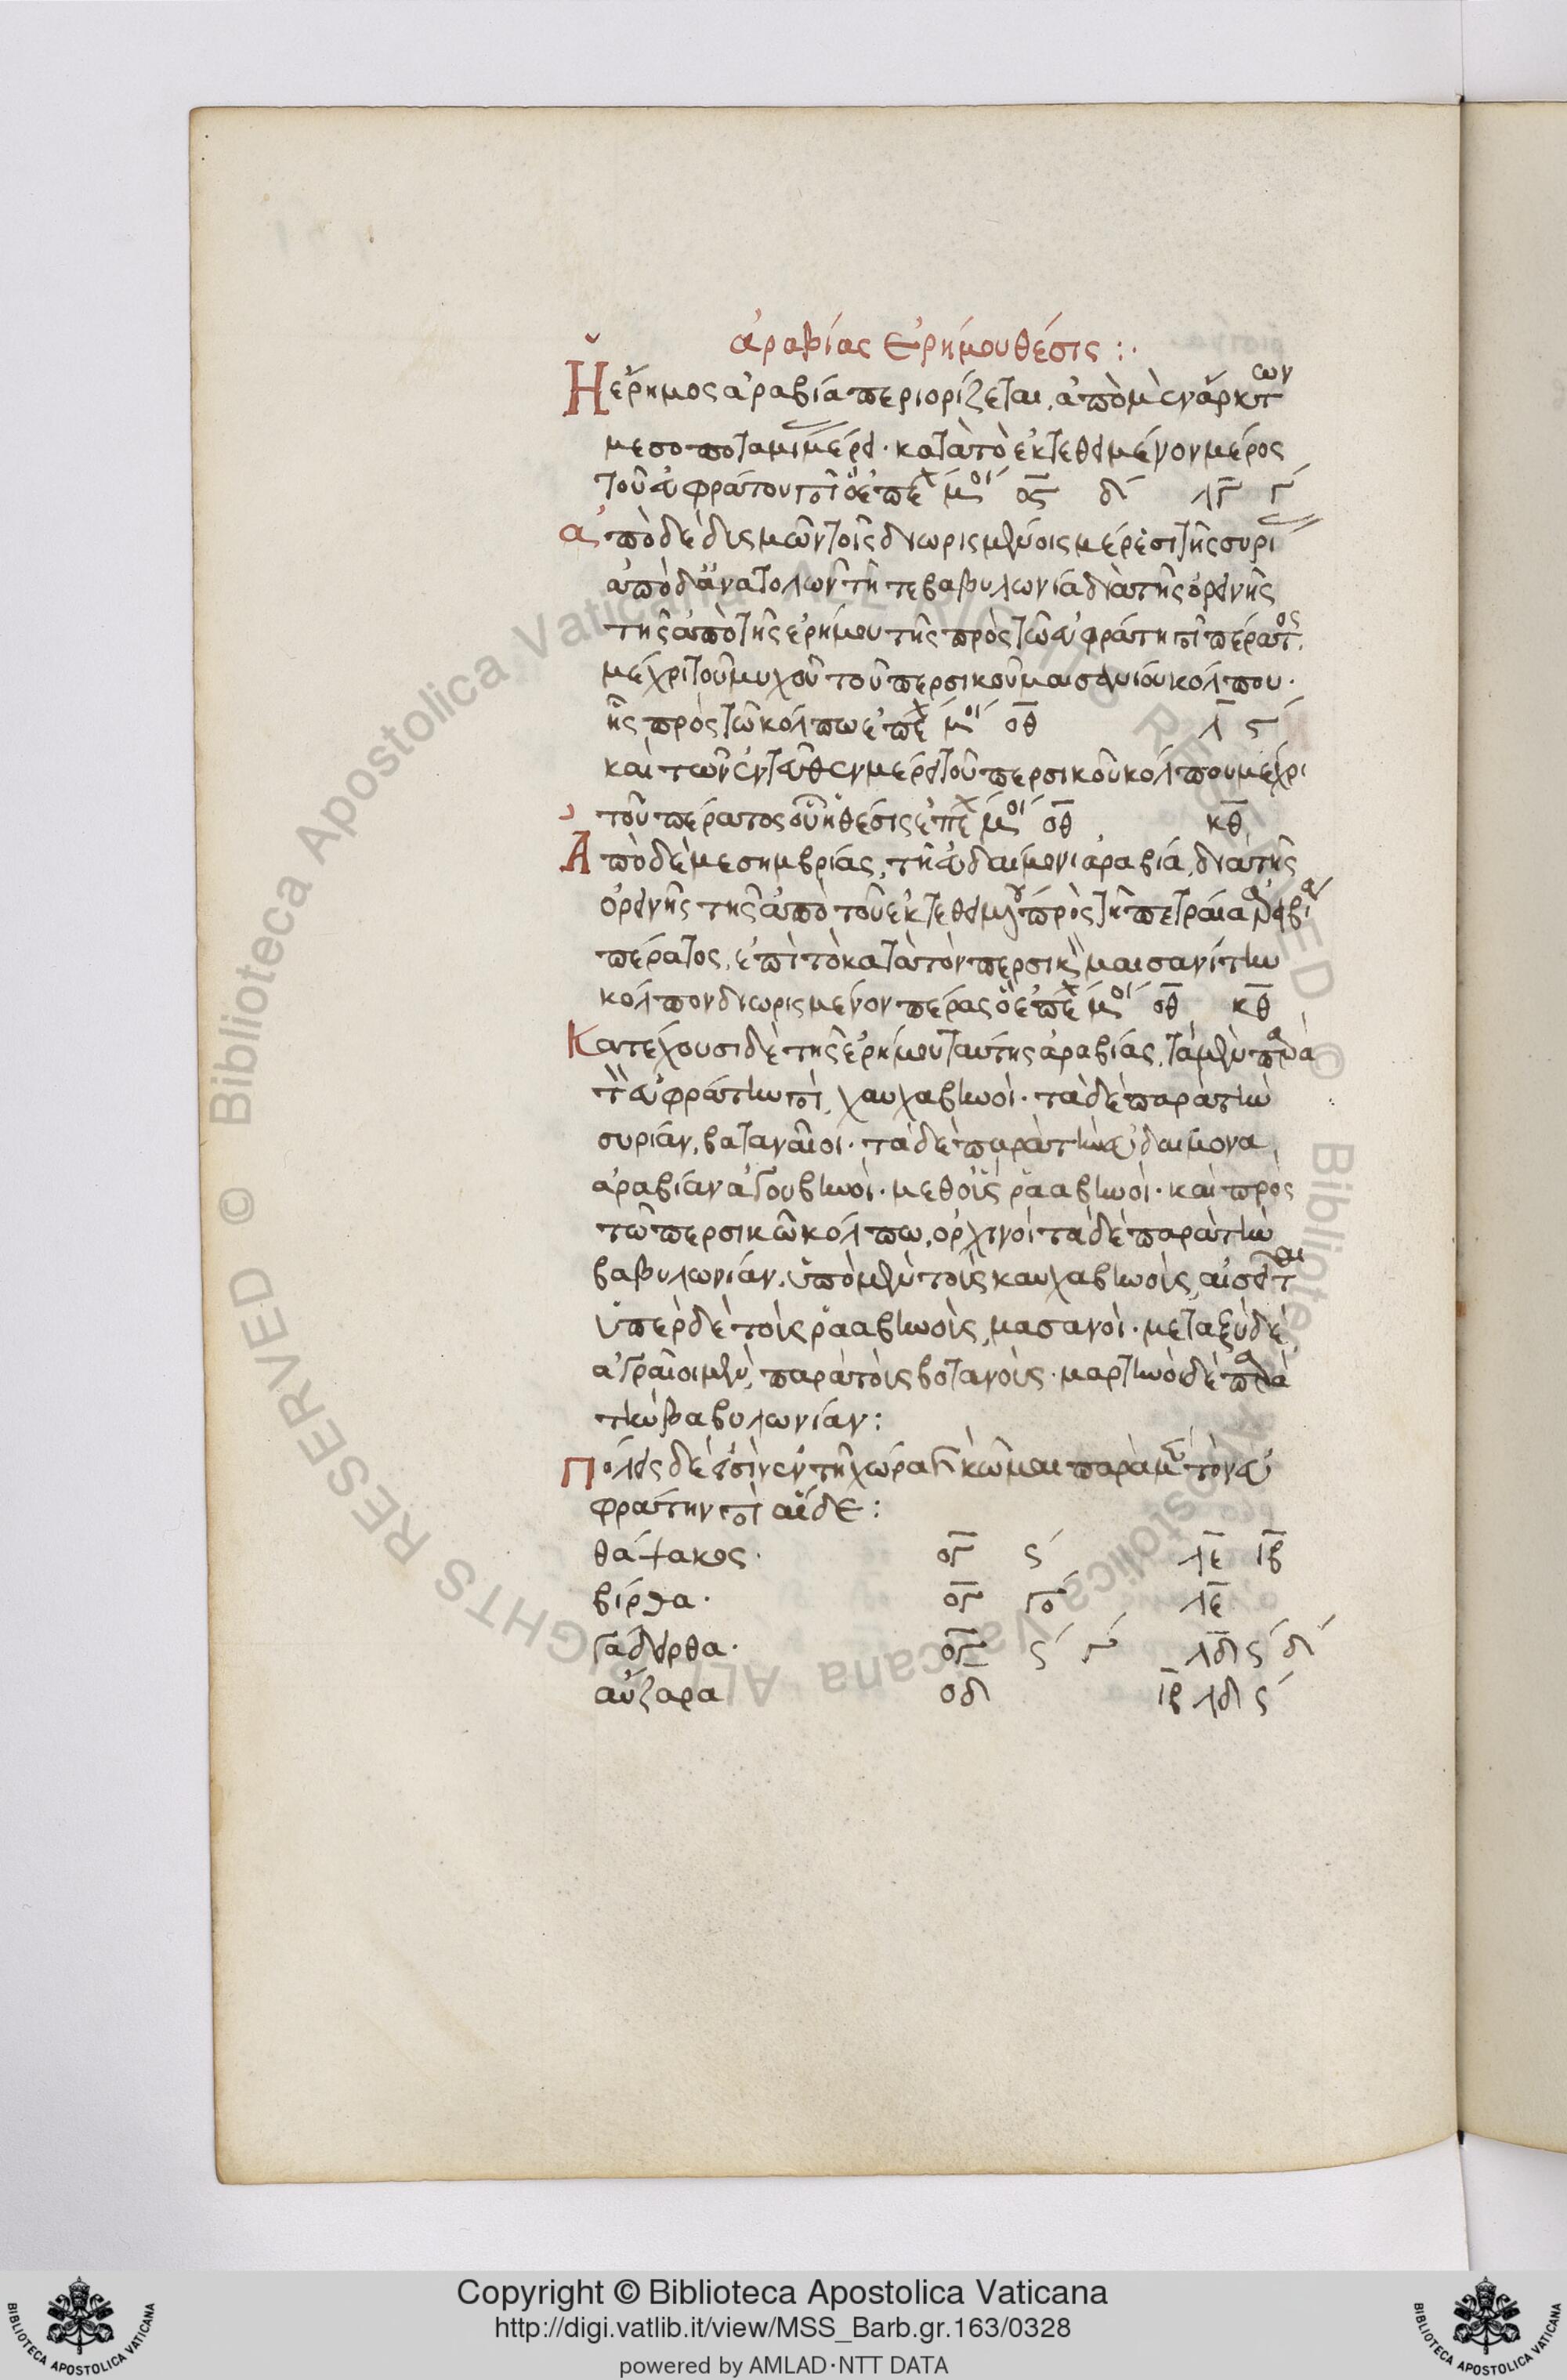 ἀραβίας ἐρήμου θέσις :·
Ἡ ἔρημος ἀραβία περιορίζεται, ἀπὸ μὲν ἄρκτων
μέρει· κατὰ τὸ ἐκτεθειμένον μέρος
τοῦ εὐφράτου ὃ ἐπέχει μοί ος δ΄ λγ γ΄
ἀπὸ δὲ δυσμῶν τοῖς διωρισμένοις μέρεσι τῆς συρί
ἀπὸ δ ἀνατολῶν τῆ τε βαβυλωνία διὰ τῆς ὀρεινῆς
τῆς ἀπὸ τῆς ἐρήμου τῆς πρὸς τῶ εὐφράτη πέρατος
μέχρι τοῦ μυχοῦ τοῦ περσικοῦ κόλπου·
ἧς πρὸς τῶ κόλπω ἐπέχει μοί οθ λ ς΄
καὶ τῶν ἐντεῦθεν μέρει τοῦ περσικοῦ κόλπου μέχρι
τοῦ πέρατος οὗ ἡ θέσις ἐπέχει μοί οθ κθ
Ἀπὸ δὲ μεσημβρίας, τῆ εὐδαίμονι ἀραβία, διὰ τῆς
ὀρεινῆς τῆς ἀπὸ τοῦ ἐκτεθειμένου πρὸς τῆ πετραία ἀραβία
πέρατος, ἐπὶ τὸ κατὰ τὸν περσικὸν μαισανίτην
κόλπον διωρισμένον πέρας ὃ ἐπέχει μοί οθ κθ
Κατέχουσι δὲ τῆς ἐρήμου ταύτης ἀραβίας, τὰ μὲν παρὰ
τὸν εὐφράτην, χαυχαβηνοί· τὰ δὲ παρὰ τὴν
συρίαν, βαταναῖοι· τὰ δὲ παρὰ τὴν εὐδαίμονα
ἀραβίαν ἀγουβηνοί· μεθ οἷς ῥααβηνοί· καὶ πρὸς
τῶ περσικῶ κόλπω, ὀρχινοί τὰ δὲ παρὰ τὴν
βαβυλωνίαν, ὑπὸ μὲν τοῖς καυχαβηνοῖς, αἰσεῖται
ὑπὲρ δὲ τοῖς ῥααβηνοῖς, μασανοί· μεταξὺ δὲ
ἀγραῖοι μὲν, παρὰ τοῖς βοτανοῖς· μαρτηνοὶ δὲ παρὰ
τὴν βαβυλωνίαν :
Πόλεις δέ εἰσὶν ἐν τῆ χώρα καὶ κῶμαι παρὰ μὲν τὸν εὐ
φράτην αἵδε :
θάψακος· ογ ς΄ λε ιβ
βίρθα· ογ γο΄ λε
γάδειρθα· ογ ς΄ γ΄ λδ ς΄ δ΄
αὔζαρα οδ ιβ λδ ς΄
Copyright © Biblioteca Apostolica Vaticana
http://digi.vatlib.it/view/MSS_Barb.gr.163/0328
powered by AMLAD·NTT DATA